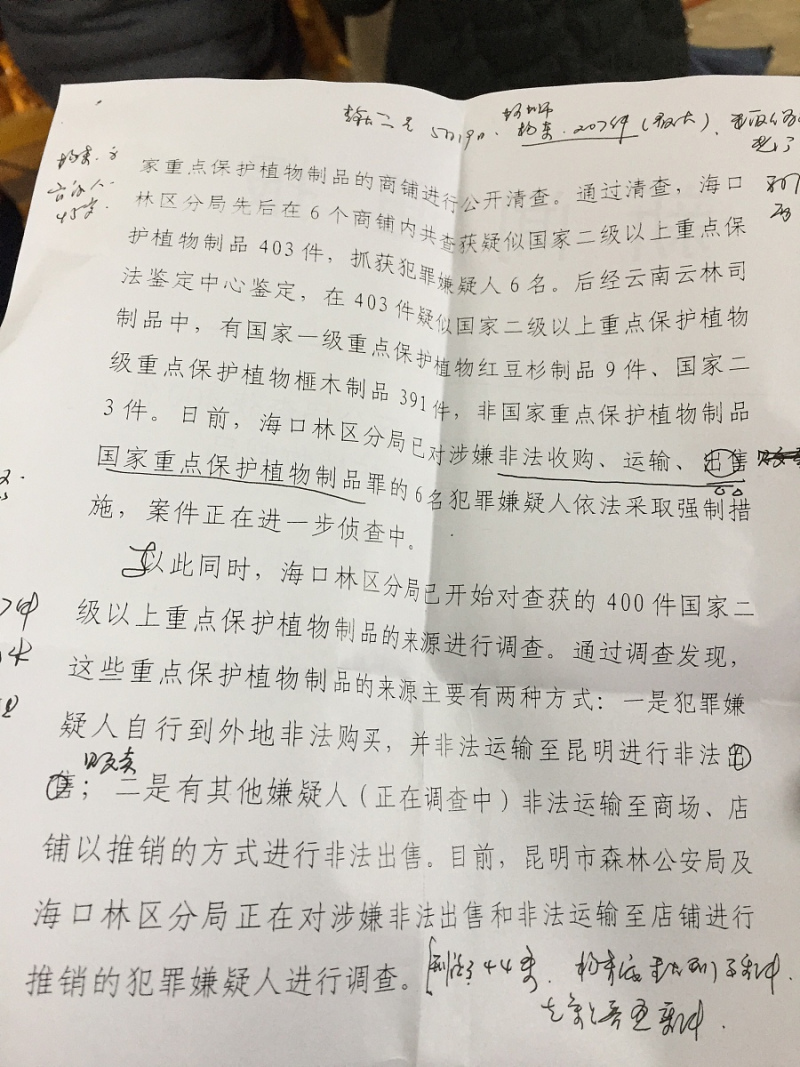 5月19日、
207件
家重点保护植物制品的商铺进行公开清查。通过清查，海口
林区分局先后在6个商铺内共查获疑似国家二级以上重点保
护植物制品403件，抓获犯罪嫌疑人6名。后经云南云林司
法鉴定中心鉴定，在403件疑似国家二级以上重点保护植物
制品中，有国家一级重点保护植物红豆杉制品9件、国家二
级重点保护植物榧木制品391件，非国家重点保护植物制品
3件。日前，海口林区分局已对涉嫌非法收购、运输、出售
国家重点保护植物制品罪的6名犯罪嫌疑人依法采取强制措
施，案件正在进一步侦查中。
以此同时，海口林区分局已开始对查获的400件国家二
级以上重点保护植物制品的来源进行调查。通过调查发现，
这些重点保护植物制品的来源主要有两种方式：一是犯罪嫌
疑人自行到外地非法购买，并非法运输至昆明进行非法出
贩卖
售；二是有其他嫌疑人（正在调查中）非法运输至商场、店
铺以推销的方式进行非法出售。目前，昆明市森林公安局及
海口林区分局正在对涉嫌非法出售和非法运输至店铺进行
推销的犯罪嫌疑人进行调查。